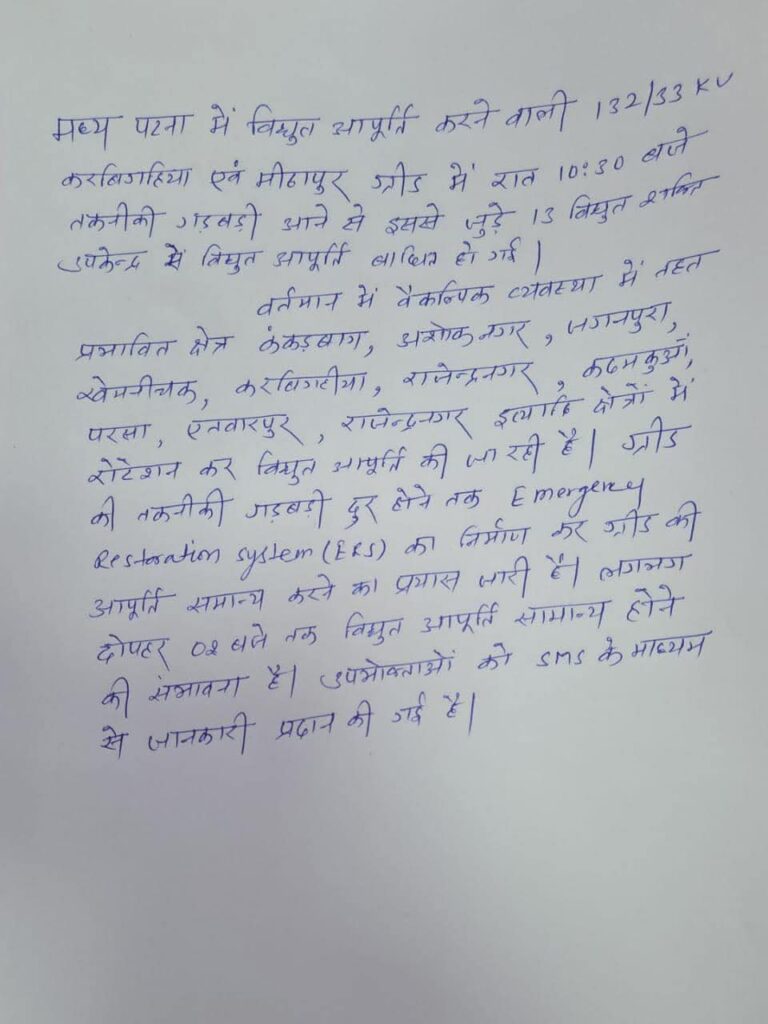 मध्य पटना में विद्युत आपूर्ति करने वाली 132/33 KV
करबिगहिया एवं मीठापुर ग्रीड में रात 10:30 बजे
तकनीकी गड़बड़ी आने से इससे जुड़े 13 विद्युत शक्ति
उपकेन्द्र से विद्युत आपूर्ति बाधित हो गई।
वर्तमान में वैकल्पिक व्यवस्था में तहत
प्रभावित क्षेत्र कंकड़बाग, अशोक नगर, जगनपुरा,
खेमनीचक, करबिगहीया, राजेन्द्रनगर, कदमकुआँ,
परसा, एतवारपुर, राजेन्द्रनगर इत्यादि क्षेत्रों में
रोटेशन कर विद्युत आपूर्ति की जा रही है। ग्रीड
की तकनीकी गड़बड़ी दुर होने तक Emergency
Restoration system (ERS) का निर्माण कर ग्रीड की
आपूर्ति समान्य करने का प्रयास जारी है। लगभग
दोपहर 02 बजे तक विद्युत आपूर्ति सामान्य होने
की संभावना है। उपभोक्ताओं को SMS के माध्यम
से जानकारी प्रदान की गई है।